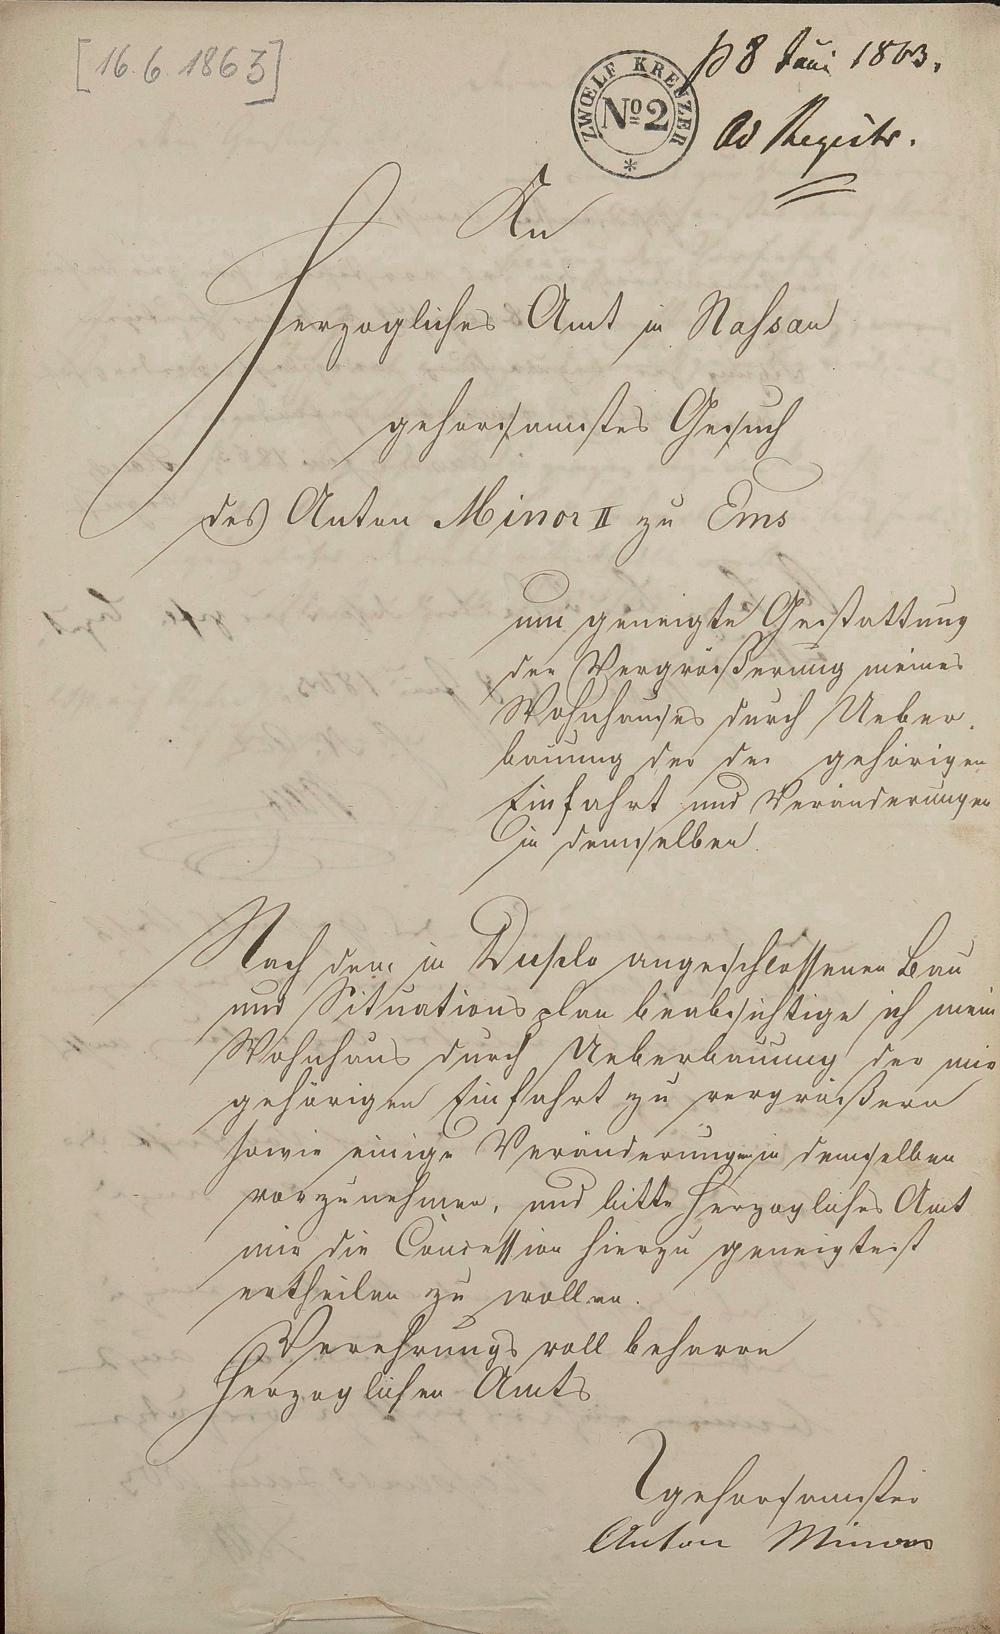 [16.6.1863]
p 8 Juni 1863.
ZWŒLF KREUZER
No 2
Ad Registr.
An
Herzogliches Amt in Nassau
gehorsamstes Gesuch
des Anton Minor II zu Ems
um geneigte Gestattung
der Vergrößerung meines
Wohnhauses durch Ueber-
bauung der der gehörigen
Einfahrt und Veränderungen
in demselben.
Nach dem in Duplo angeschlossenen Bau
und Situationsplan beabsichtige ich mein
Wohnhaus durch Ueberbauung der mir
gehörigen Einfahrt zu vergrößern
sowie einige Veränderungen in demselben
vorzunehmen, und bitte Herzogliches Amt
mir die Concession hierzu geneigtest
ertheilen zu wollen.
Verehrungsvoll beharre
Herzoglichen Amts
gehorsamster
Anton Minor